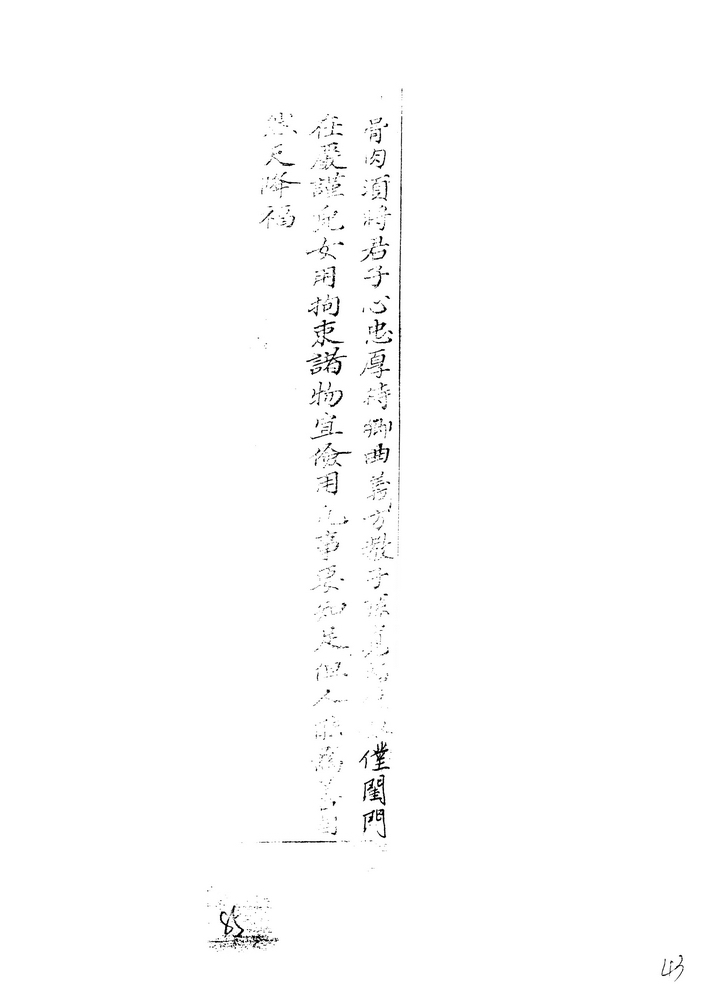 骨肉須將君子心忠厚待鄉曲義方教子孫寬 僮閨門
在嚴謹兒女用拘束諸物宜儉用凡事要知足但人能為善自
然天降福
85
43